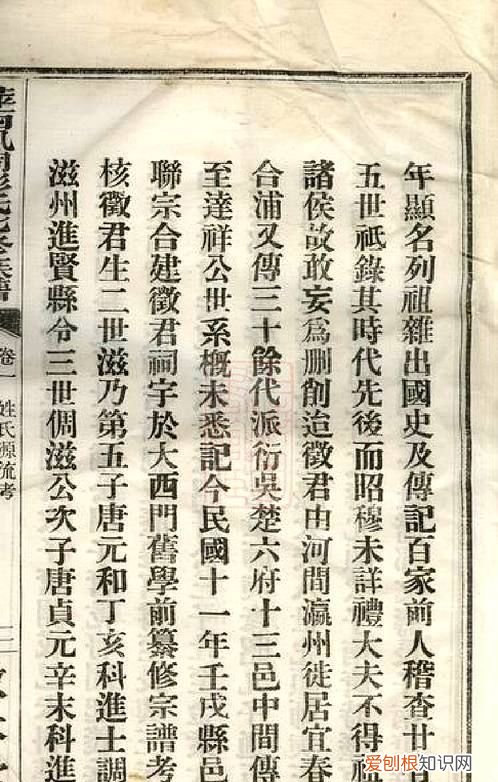 年顯名列祖雜出國史及傳記百家前人稽查廿
五世祇錄其時代先後而昭穆未詳禮大夫不得祖
諸侯故敢妄爲删削迨徵君由河間瀛州徙居宜春
合浦又傳三十餘代派衍吳楚六府十三邑中間傳
至達祥公世系概未悉記今民國十一年壬戌縣邑
聯宗合建徵君祠宇於大西門舊學前纂修宗譜考
核徵君生二世滋乃第五子唐元和丁亥科進士調
滋州進賢縣令三世倜滋公次子唐貞元辛未科進
卷一
姓氏源流考
爱刨根知识网